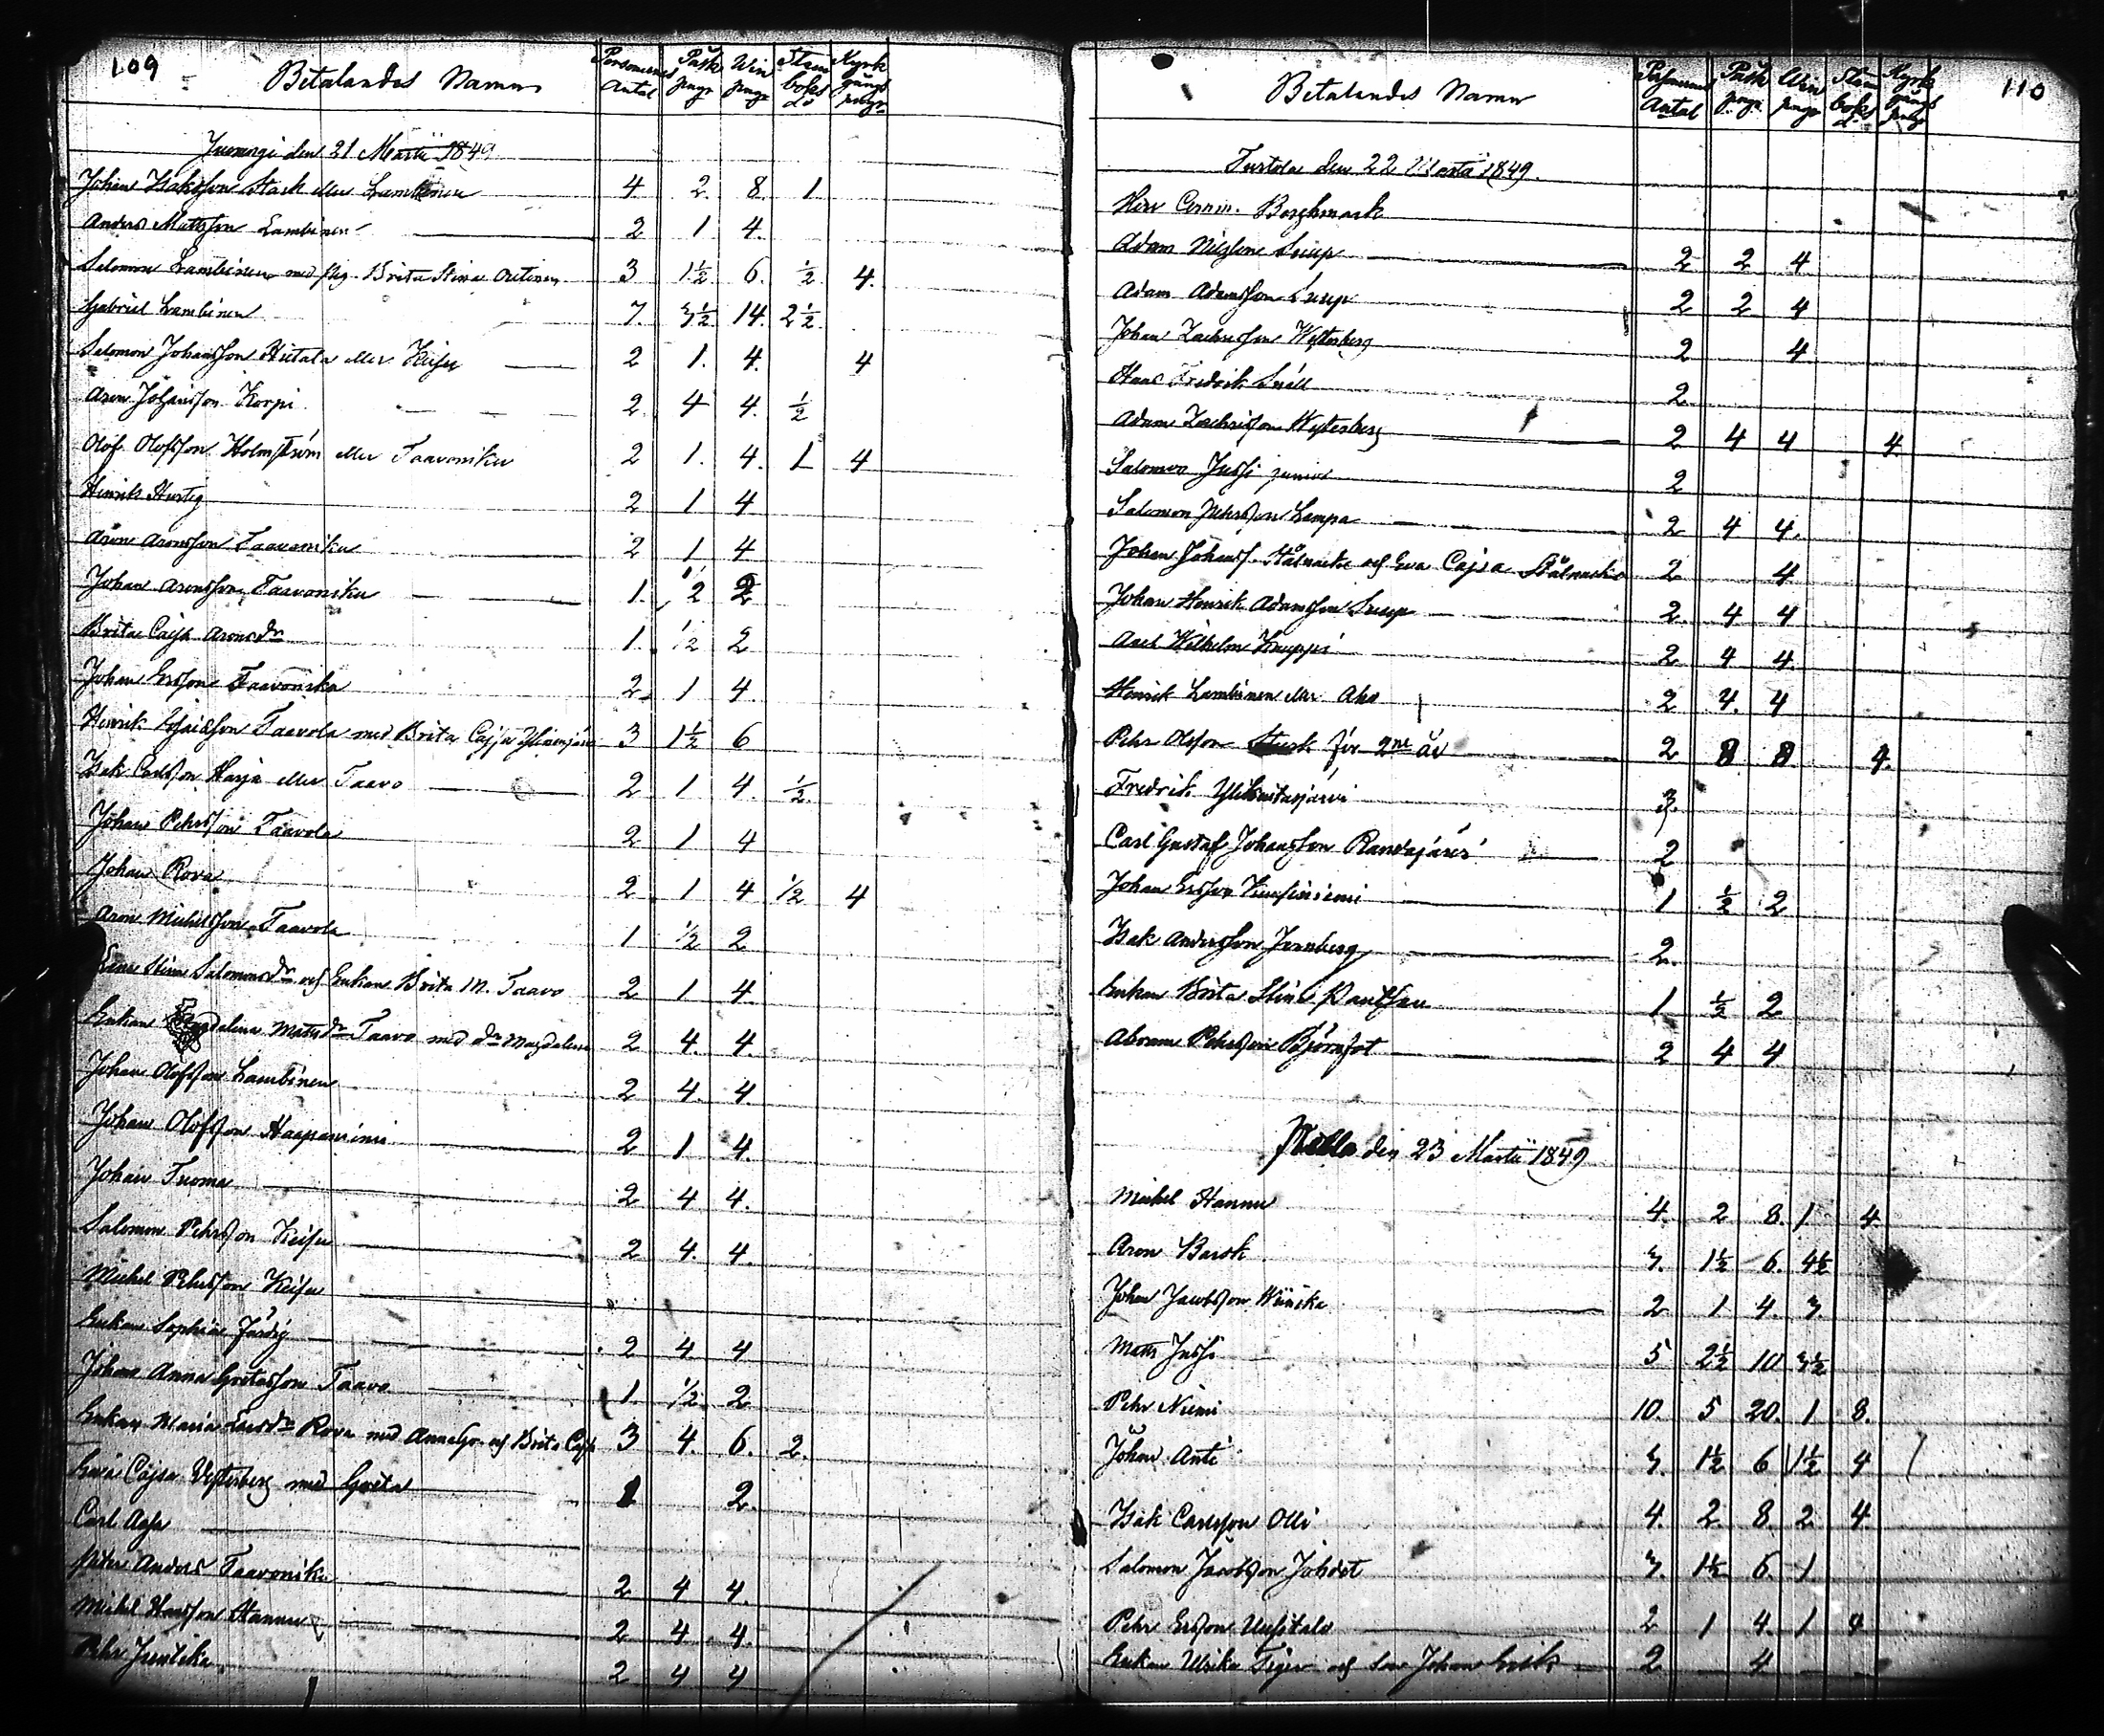 109
Betalandes Namn Personernes Antal Påsk pngr Win pngr Stam boks do Kyrk gångs pngr
Juoxengi den 21 Martii 1849
Johan Isaksson Stark eller Lambinen 4 2 8. 1
Anders Mattsson Lambinen 2 1 4.
Salomon Lambinen med pig. Brita Stina 3 1½ 6. ½ 4.
Gabriel Lambinen 7. 3½ 14. 2½
Salomon Johansson Hietala eller Keisu 2 1. 4. 4
Aron Johansson Korpi 2. 4 4. ½
Olof Olofsson Holmström eller Taavoniku 2 1. 4. 1 4
Henrik Hurtig 2 1 4
Aron Aronsson Taavoniku 2 1 4
Johan Aronsson Taavoniku 1. ½ 2
Brita Cajsa Aronsdr 1. ½ 2
Johan Ersson Taavonika 2 1 4.
Henrik Taavola med Brita Cajsa 3 1½ 6
Isak Carlsson Harja eller Taavo 2 1 4. ½
Johan Pehrsson Taavola 2 1 4
Johan Rova 2 1 4 ½ 4
Aron Michelsson Taavola 1 ½ 2
Stina Salomonsdr och Enkan Brita M. Taavo 2 1 4.
Enkan Magdalena Matsdr Taavo med dr Magdalena 2 4. 4.
Johan Olofsson Lambinen 2 4. 4.
Johan Olofsson Haapaniemi 2 1 4.
Johan Tuoma 2 4 4.
Salomon Pehrsson Keisu 2 4. 4.
Michel Pehrsson Keisu
Enkan Sophia Färdig 2 4 4
Johan Anna Gretasson Taavo 1. ½ 2
Enkan Maria Larsdr Rova med Anna Gr. och Brita Cajsa 3 4. 6. 2.
Eva Cajsa Westerberg med Greta 1 2.
Carl
Peter Anders Taavoniku 2 4 4.
Michel Hansson Hannu 2 4 4.
Pehr Juntika 2 4 4
110
Betalandes Namn Personernes Antal Påsk pngr. Win pngr Stam boks do Kyrk gångs pngr
Turtola den 22 Martii 1849.
Herr Comm. Borghmark
Adam Nilsson Snup 2 2 4
Adam Adamsson Snup 2 2 4
Johan Zachrisson Westerberg 2 4
Hans Fredrik Snell 2
Adam Zachrisson Westerberg 2 4 4 4
Salomon Jussi junior 2
Salomon Pehrsson Lampa 2 4 4.
Johan Johanss. Stålnacke och Eva Cajsa Stålnacke 2 4
Johan Henrik Adamsson Snup 2 4 4
Axel Wilhelm Kruppi 2 4 4
Henrik Lambinen eller Aho 2 4. 4
Pehr Olsson Stark för 2ne år 2 8 8 4.
Fredrik 3.
Carl Gustaf Johansson Rantajärvi 2
Johan Ersson 1 ½ 2
Isak Andersson Jernberg 2.
Enkan Brita Stina 1 ½ 2
Abram Pehrsson Björnfot 2 4 4
Pello den 23 Martii 1849
Michel Hannu 4. 2 8. 1 4
Aron Barsk 3. 1½ 6. 4½
Johan Jacobsson Wiinika 2 1 4. 3.
Matts Jussi 5 2½ 10 3½
Pehr Niemi 10. 5 20. 1 8.
Johan Anti 3. 1½ 6 1½ 4
Isak Carlsson Olli 4. 2. 8. 2 4
Salomon Jacobsson Johdet 3. 1½ 6. 1
Pehr Ersson Uusitalo 2 1 4. 1 4
Enkan Ulrika Tiger och son Johan Erik 2 4